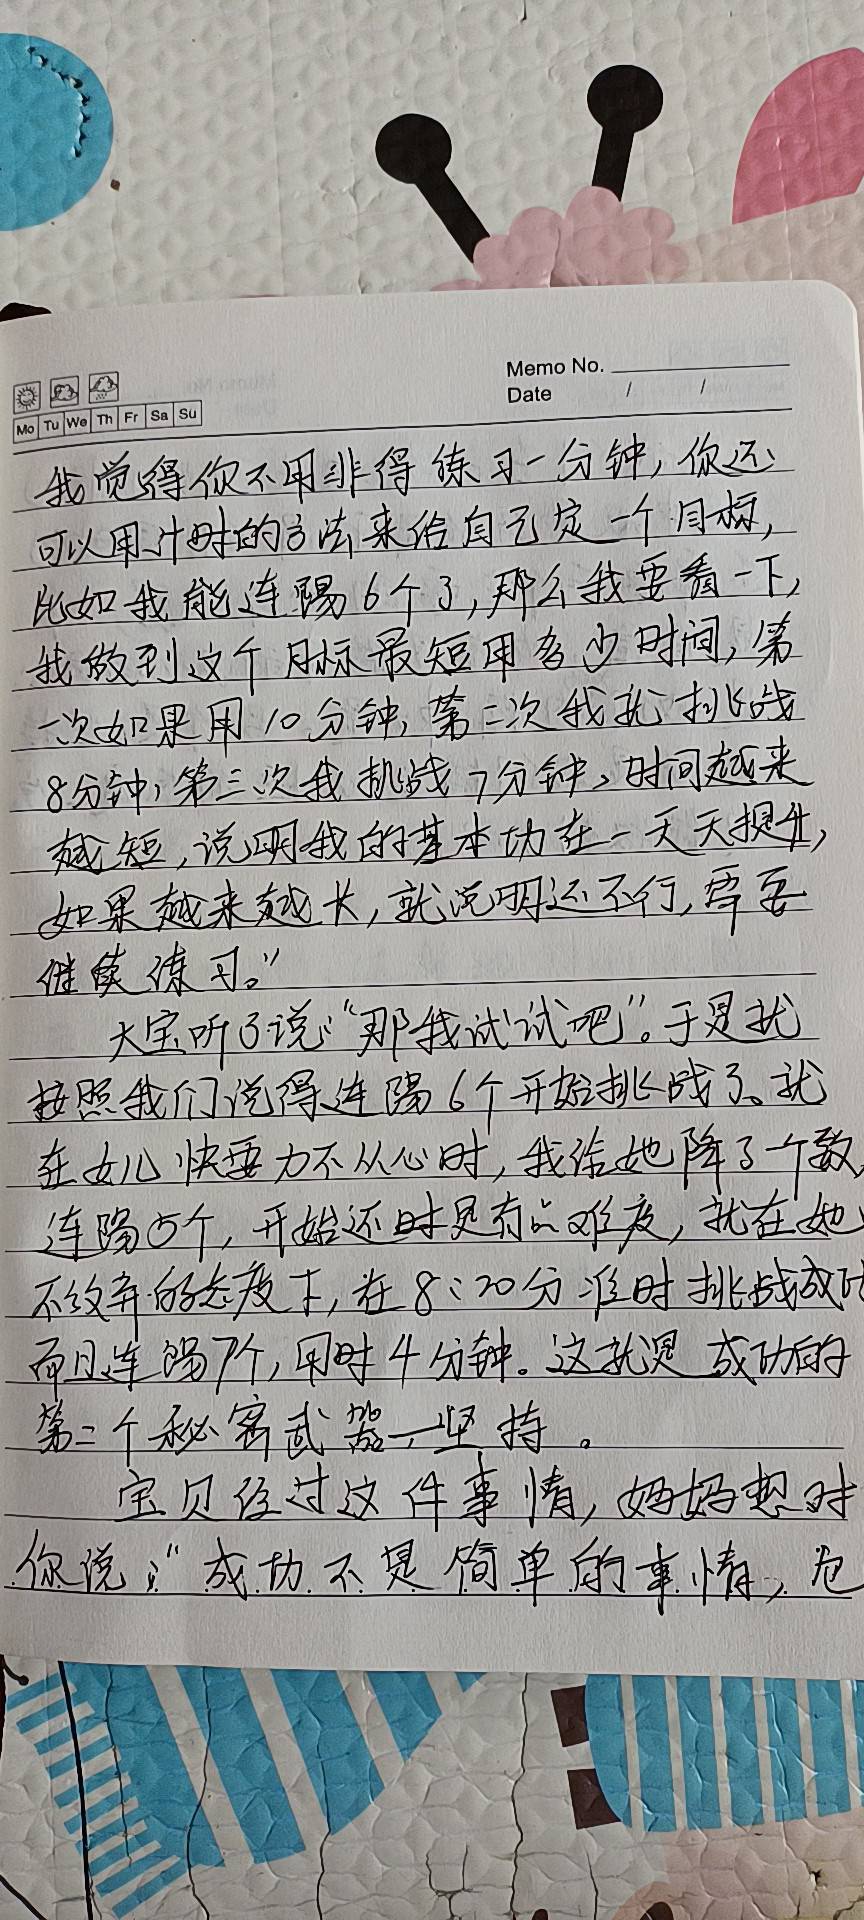 Memo No.
Date / /
Mo Tu We Th Fr Sa Su
我觉得你不用非得练习一分钟,你还
可以用计时的方法来给自己定一个目标,
比如我能连踢6个了,那么我要看一下,
我做到这个目标最短用多少时间,第
一次如果用10分钟,第二次我就挑战
8分钟,第三次我挑战7分钟,时间越来
越短,说明我的基本功在一天天提升,
如果越来越长,就说明还不行,需要
继续练习。”
大宝听了说:“那我试试吧”。于是就
按照我们说得连踢6个开始挑战了。就
在女儿快要力不从心时,我给她降了个数,
连踢5个,开始还时是有点难度,就在她
不放弃的态度下,在8:20分准时挑战成功
而且连踢7个,用时4分钟。这就是成功的
第二个秘密武器—坚持。
宝贝经过这件事情,妈妈想对
你说:“成功不是简单的事情,它